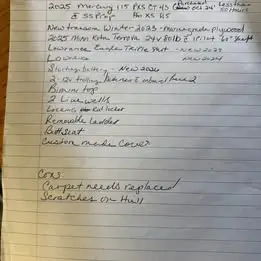 2025 Mercury 115 PXS CT 4S Received Less than
& SS Prop Pro XS 115 Oct 24 50 Hours
New transom Winter-2025 - Marinegrade Plywood
2025 Minn Kota Terrova 24V 80lb I Pilot 60" Shaft
Lowrance Eagle Triple Shot - New 2025
Lowrance New 2024
Starting battery - New 2024
2- trolling
Bimini top
2 Livewells
Locking Rod locker
Removable Ladder
Butt Seat
Custom made Cover
Cons:
Carpet needs replaced
Scratches on Hull